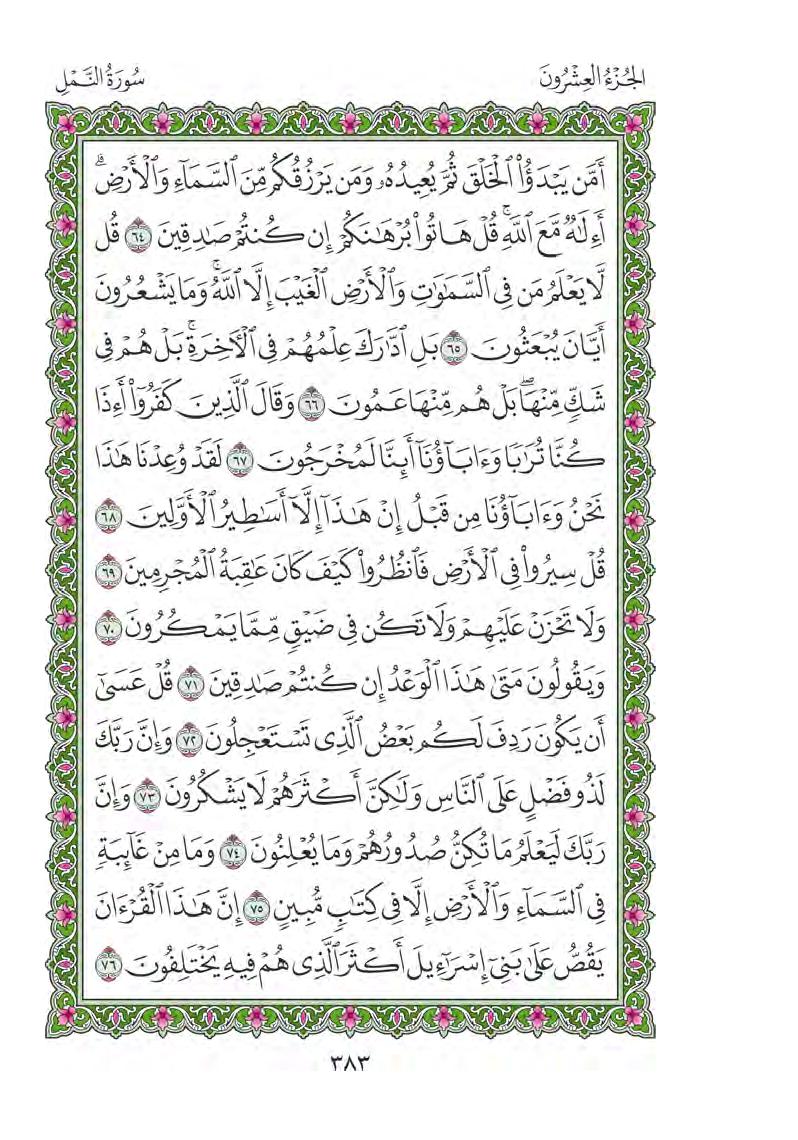 الجُزْءُ العِشْرُونَ
سُورَةُ النَّمْلِ
أَمَّن يَبْدَؤُا۟ ٱلْخَلْقَ ثُمَّ يُعِيدُهُۥ وَمَن يَرْزُقُكُم مِّنَ ٱلسَّمَآءِ وَٱلْأَرْضِ ۗ
أَءِلَـٰهٌ مَّعَ ٱللَّهِ ۚ قُلْ هَاتُوا۟ بُرْهَـٰنَكُمْ إِن كُنتُمْ صَـٰدِقِينَ ٦٤ قُل
لَّا يَعْلَمُ مَن فِى ٱلسَّمَـٰوَٰتِ وَٱلْأَرْضِ ٱلْغَيْبَ إِلَّا ٱللَّهُ ۚ وَمَا يَشْعُرُونَ
أَيَّانَ يُبْعَثُونَ ٦٥ بَلِ ٱدَّٰرَكَ عِلْمُهُمْ فِى ٱلْـَٔاخِرَةِ ۚ بَلْ هُمْ فِى
شَكٍّ مِّنْهَا ۖ بَلْ هُم مِّنْهَا عَمُونَ ٦٦ وَقَالَ ٱلَّذِينَ كَفَرُوٓا۟ أَءِذَا
كُنَّا تُرَٰبًا وَءَابَآؤُنَآ أَئِنَّا لَمُخْرَجُونَ ٦٧ لَقَدْ وُعِدْنَا هَـٰذَا
نَحْنُ وَءَابَآؤُنَا مِن قَبْلُ إِنْ هَـٰذَآ إِلَّآ أَسَـٰطِيرُ ٱلْأَوَّلِينَ ٦٨
قُلْ سِيرُوا۟ فِى ٱلْأَرْضِ فَٱنظُرُوا۟ كَيْفَ كَانَ عَـٰقِبَةُ ٱلْمُجْرِمِينَ ٦٩
وَلَا تَحْزَنْ عَلَيْهِمْ وَلَا تَكُن فِى ضَيْقٍ مِّمَّا يَمْكُرُونَ ٧٠
وَيَقُولُونَ مَتَىٰ هَـٰذَا ٱلْوَعْدُ إِن كُنتُمْ صَـٰدِقِينَ ٧١ قُلْ عَسَىٰٓ
أَن يَكُونَ رَدِفَ لَكُم بَعْضُ ٱلَّذِى تَسْتَعْجِلُونَ ٧٢ وَإِنَّ رَبَّكَ
لَذُو فَضْلٍ عَلَى ٱلنَّاسِ وَلَـٰكِنَّ أَكْثَرَهُمْ لَا يَشْكُرُونَ ٧٣ وَإِنَّ
رَبَّكَ لَيَعْلَمُ مَا تُكِنُّ صُدُورُهُمْ وَمَا يُعْلِنُونَ ٧٤ وَمَا مِنْ غَآئِبَةٍ
فِى ٱلسَّمَآءِ وَٱلْأَرْضِ إِلَّا فِى كِتَـٰبٍ مُّبِينٍ ٧٥ إِنَّ هَـٰذَا ٱلْقُرْءَانَ
يَقُصُّ عَلَىٰ بَنِىٓ إِسْرَٰٓءِيلَ أَكْثَرَ ٱلَّذِى هُمْ فِيهِ يَخْتَلِفُونَ ٧٦
٣٨٣